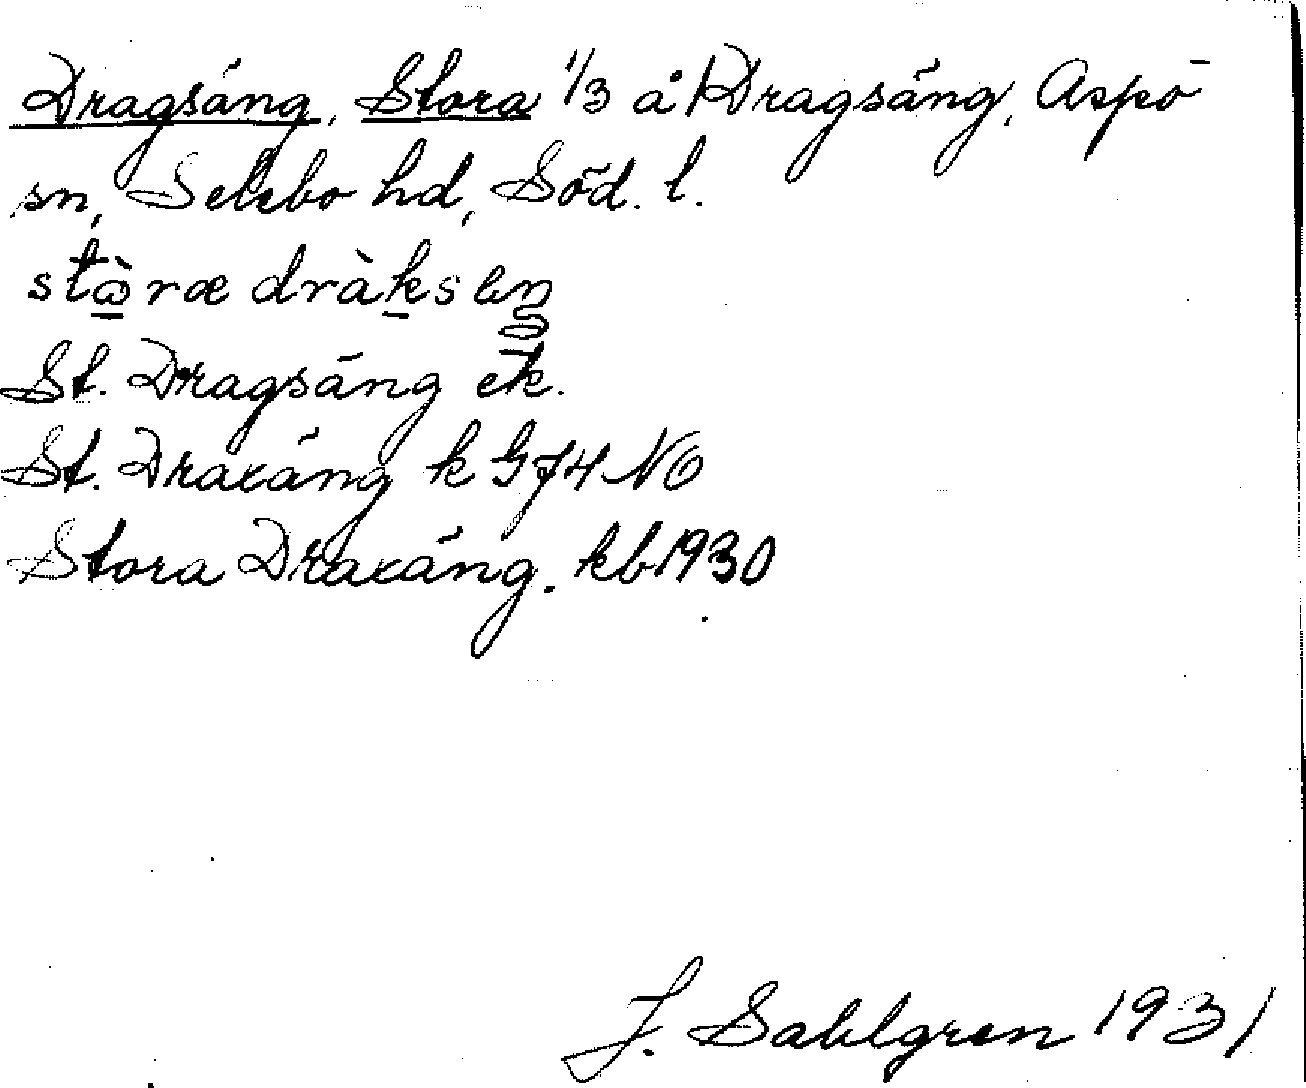 Dragsäng, Stora 1/3 å 1 Dragsäng, Aspö
sn, Selebo hd, Söd. l.
St. Dragsäng ek.
St. Draxäng k G74 NO
Stora Draxäng. kb 1930
J. Sahlgren 1931